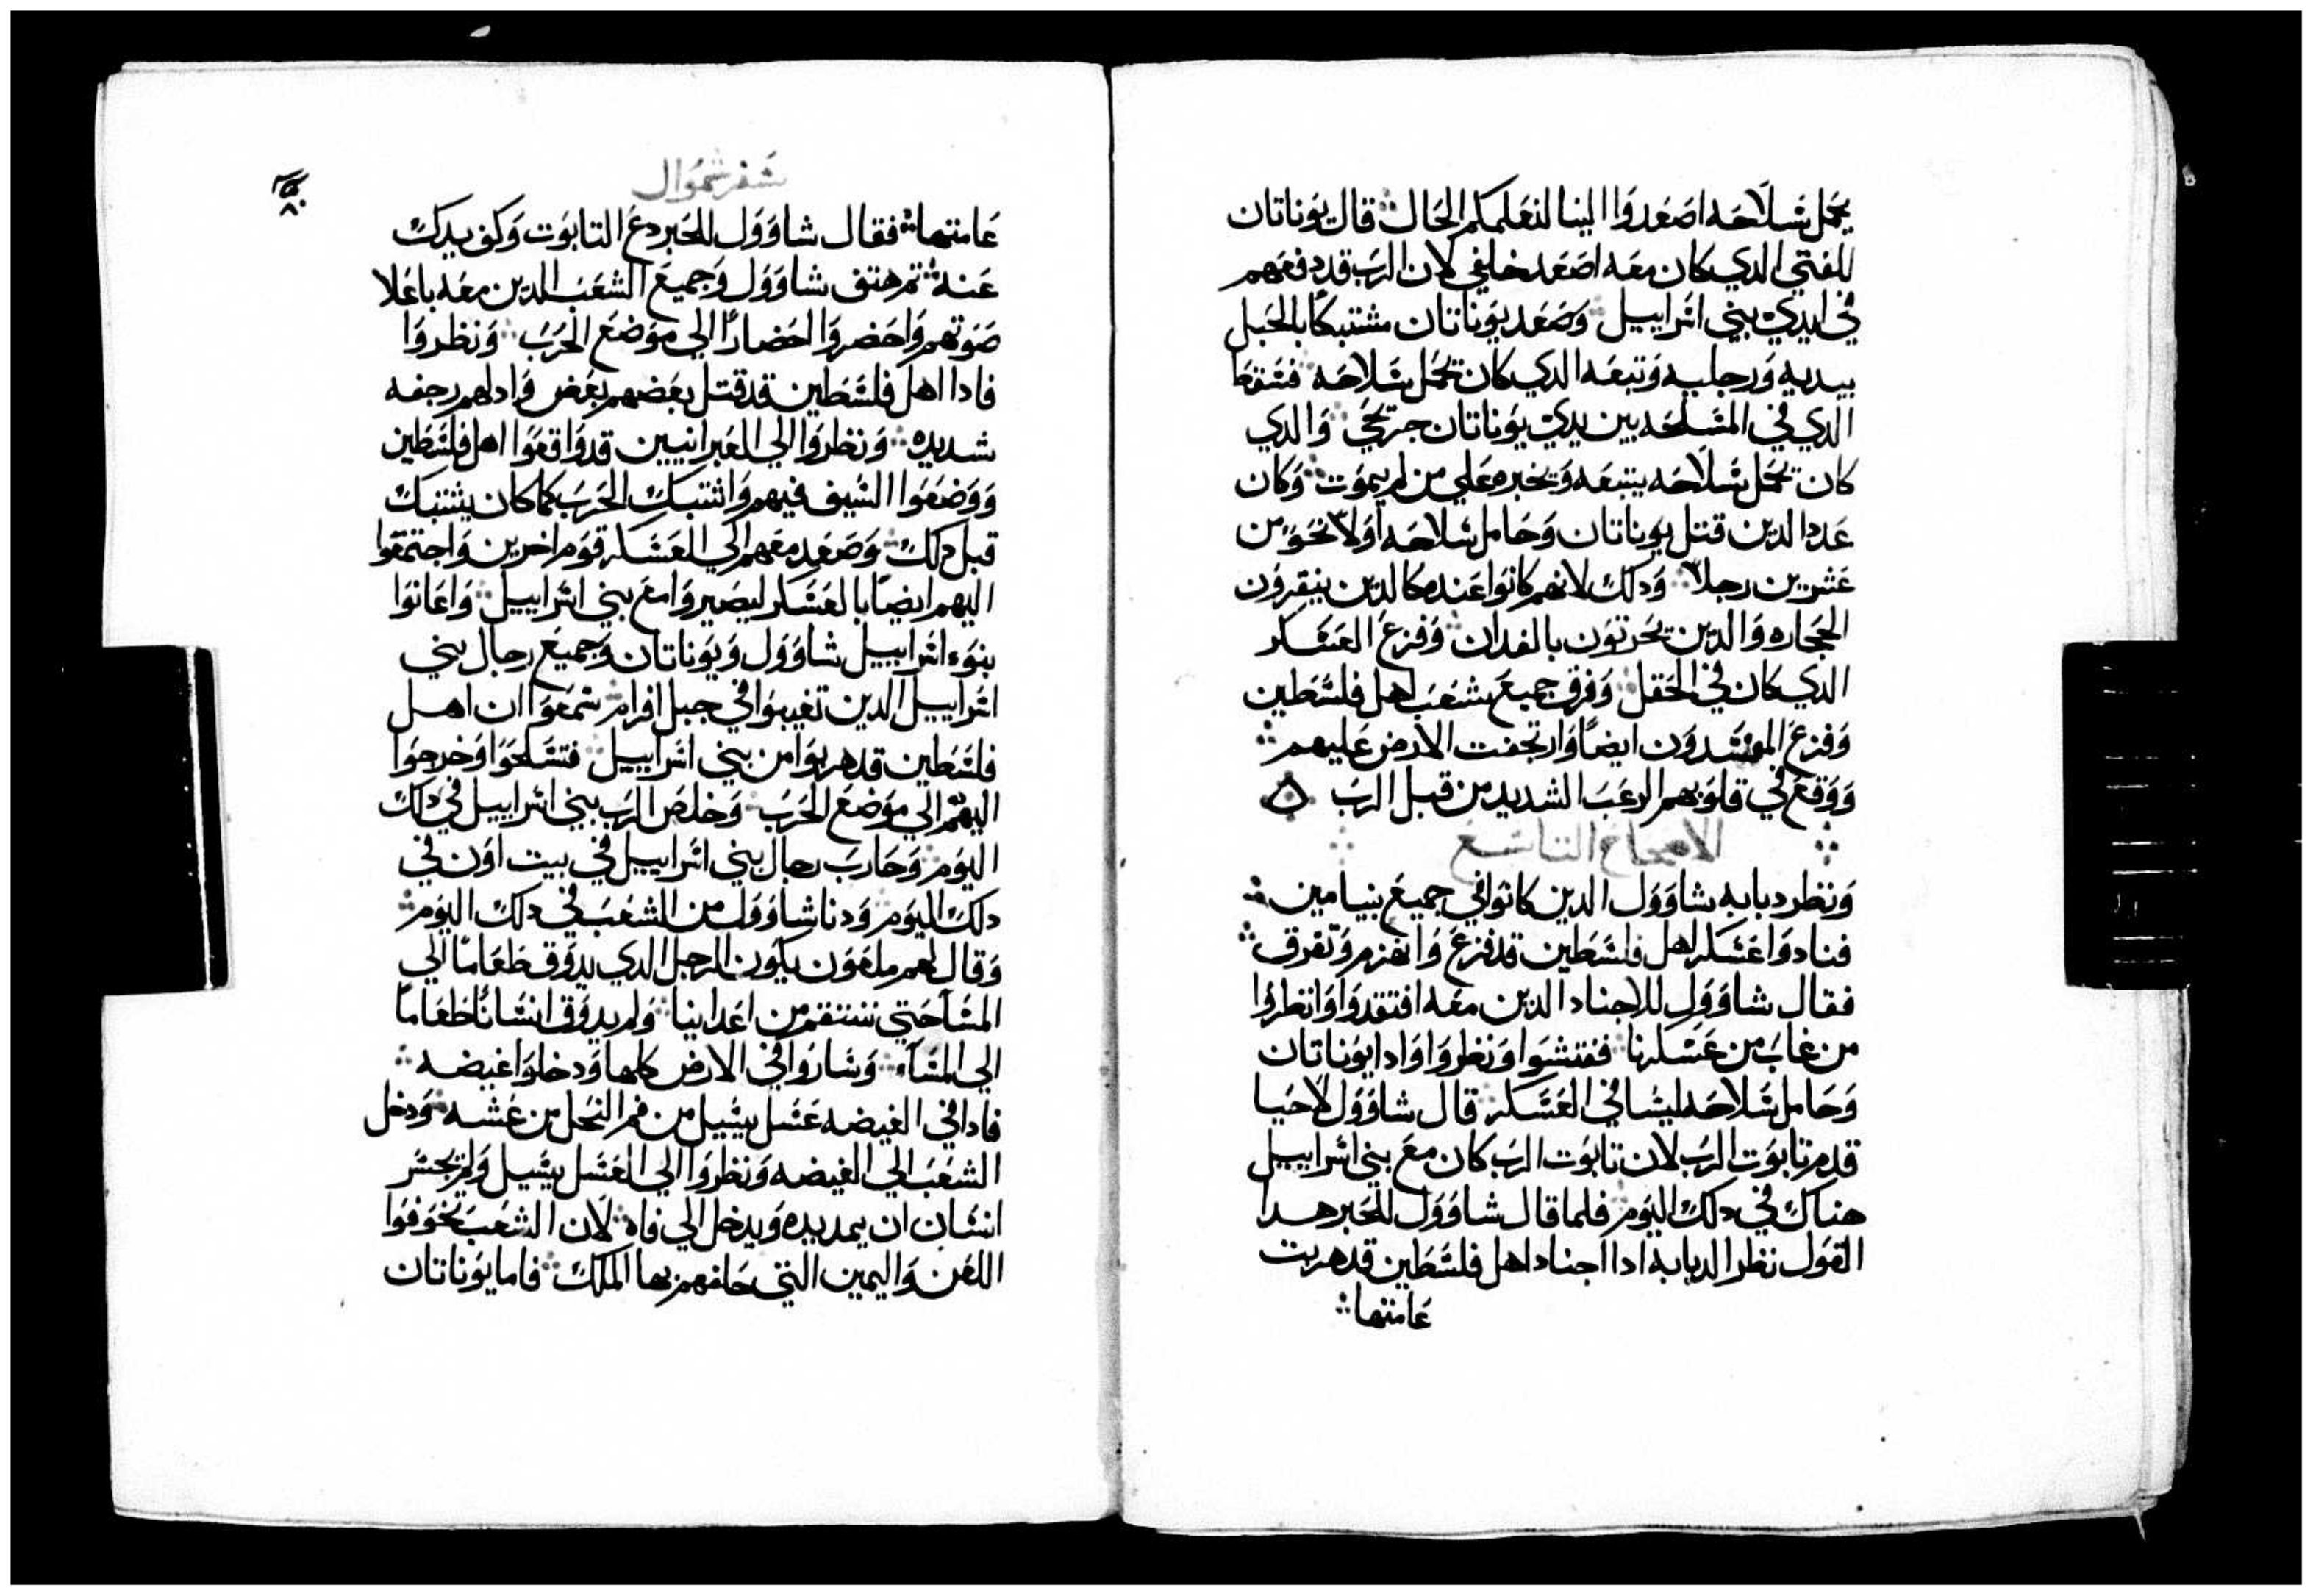 يحمل سلاحه اصعدوا الينا لنعلمكم الحال قال يوناتان
للفتي الدي كان معه اصعد خلفي لان الرب قد دفعهم
في ايدي بني اسراييل وصعد يوناتان مشتبكا بالجبل
بيديه ورجليه وتبعه الدي كان يحمل سلاحه فسقط
الدي في المسلحه بين يدي يوناتان جريحي والدي
كان يحمل سلاحه يتبعه ويخبره علي من لم يموت وكان
عدد الدين قتل يوناتان وحامل سلاحه اولا نحو من
عشرين رجلا ودلك لانهم كانوا عنده كالدين ينقرون
الحجاره والدين يحرتون بالفدان وفزع العسكر
الدي كان في الحقل وفرق جميع شعب اهل فلسطين
وفزع المفسدون ايضا وارتجفت الارض عليهم
ووقع في قلوبهم الرعب الشديد من قبل الرب
الاصحاح التاسع
ونظر دبابه شاوول الدين كانوا في جميع بنيامين
فنادوا عسكر اهل فلسطين قد فزع وانهزم وتفرق
فقال شاوول للاجناد الدين معه افتقدوا وانظروا
من غاب من عسكرنا ففتشوا ونظروا وادا يوناتان
وحامل سلاحه ليسا في العسكر قال شاوول لاحيا
قدم تابوت الرب لان تابوت الرب كان مع بني اسراييل
هناك في دلك اليوم فلما قال شاوول للحبر هدا
القول نظر الدبابه ادا اجناد اهل فلسطين قد هربت
عامتها
سفر شموال
٨٠
عامتها فقال شاوول للحبر دع التابوت وكف يدك
عنه تم هتف شاوول وجميع الشعب الدين معه باعلا
صوتهم واحضروا احضارا الي موضع الحرب ونظروا
فادا اهل فلسطين قد قتل بعضهم بعض وادلهم رجفه
شديده ونظروا الي العبرانيين قد واقعوا اهل فلسطين
ووضعوا السيف فيهم واشتبك الحرب كما كان يشتبك
قبل دلك وصعد معهم الي العسكر قوم اخرين واجتمعوا
اليهم ايضا بالعسكر ليصيروا مع بني اسراييل واعانوا
بنوء اسراييل شاوول ويوناتان وجميع رجال بني
اسراييل الدين تغيبوا في جبل افرام سمعوا ان اهل
فلسطين قد هربوا من بني اسراييل فتسلحوا وخرجوا
اليهم الي موضع الحرب وخلص الرب بني اسراييل في دلك
اليوم وحارب رجال بني اسراييل في بيت اون في
دلك اليوم ودنا شاوول من الشعب في دلك اليوم
وقال لهم ملعون يكون الرجل الدي يدوق طعاما الي
المسا حتي ننتقم من اعداينا ولم يدوق انسانا طعاما
الي المساء وساروا في الارض كلها ودخلوا غيضه
فادا في الغيضه عسل يسيل من فم النحل من عشه ودخل
الشعب الي الغيضه ونظروا الي العسل يسيل ولم يجسر
انسان ان يمد يده ويدخل الي فاه لان الشعب تخوفوا
اللعن واليمين التي حلفهم بها الملك فاما يوناتان